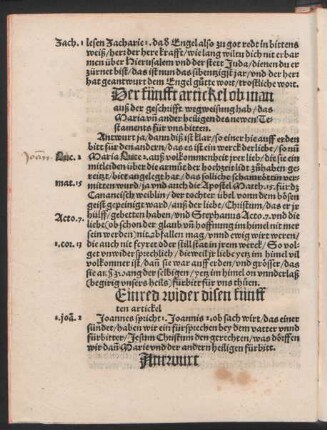 Zach. 1 lesen Zacharie 1. daß Engel also zu got redt in bittens
weiß / herr der herr krafft / wie lang wilen dich nit erbar
men über Hierusalem vnd der stett Juda / dienen du er
zürnet bist / das ist nun das sibentzigst jar / vnd der herr
hat geantwurt dem Engel gütte wort / trostliche wort.
Der fünfft artickel ob man
auß der geschrifft wegweisung hab / das
Maria vñ ander heiligen des newen Te-
staments für vns bitten.
Antwurt ja / dann diß ist klar / so einer hie auff erden
bit für den andern / das es ist ein werck der liebe / so nũ
Joan. Luc. 2 Maria Luce 2. auß volkommenheit jrer lieb / die sie ein
mitleiden über die armůt der hochzeit lüt zů Chana ge-
zeigt / hie angelegt hat / das solliche schamè bei in ver-
mat. 15 mitten wurd / ja vnd auch die Apostel Matth. 15. für dz
Cananeisch weiblin / der tochter übel vonn dem bösen
geist gepeiniget ward / auß der liebe / Christum / das er jr
Acto. 7. hülff / gebetten haben / vnd Stephanus Acto. 7. vnd die
liebe (ob schon der glaub vñ hoffnung im himel nit mer
sein werden) nit abfallen mag / vnd ewig wirt weren /
1. cor. 13 die auch nit feyret oder still stat in jrem werck / So vol-
get vnwidersprechlich / dieweil jr liebe yetz im himel vil
volkomner ist / dann sie war auff erden / vnd grösser / das
sie art. 53 anlang der selbigen / yetz im himel on vnnderlaß
(begirig vnsers heils) fürbitt für vns thüen.
Einred wider disen fünff
ten artickel
1. joã. 2 Joannes spricht 1. Joannis 2. ob sach wirt / das einer
sündet / haben wir ein fürsprechen bey dem vatter vnnd
fürbitter / Jesum Christum den gerechten / was dörffen
wir dañ Marie vnd der andern heiligen fürbitt.
Antwurt